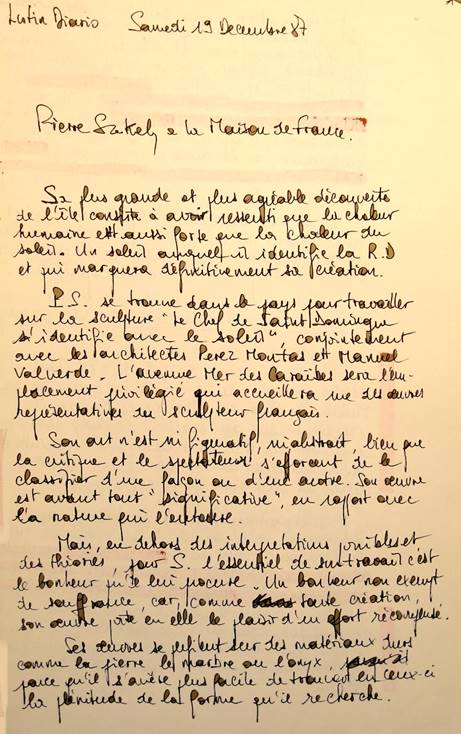 Listin Diario Samedi 19 Decembre 87
Pierre Szekely a la Maison de France.
Sa plus grande et plus agréable découverte
de l'île consiste à avoir ressenti que la chaleur
humaine est aussi forte que la chaleur du
soleil. Un soleil auquel il identifie la R.D
et qui marquera définitivement sa création.
P.S. se trouve dans le pays pour travailler
sur la sculpture "Le Chef de Saint Domingue
s'identifie avec le soleil", conjointement
avec les architectes Perez Montas et Manuel
Valverde. L'avenue Mer des Caraïbes sera l'em-
placement privilégié qui accueillera une des œuvres
représentatives du sculpteur français.
Son art n'est ni figuratif, ni abstrait, bien que
la critique et le spectateur s'efforcent de le
classifier d'une façon ou d'une autre. Son œuvre
est avant tout "significative", en rapport avec
la nature qui l'entoure.
Mais, en dehors des interprétations possibles et
des théories, pour S. l'essentiel de son travail c'est
le bonheur qu'il lui procure. Un bonheur non exempt
de souffrance, car, comme toute création,
son œuvre porte en elle le plaisir d'un effort récompensé.
Ses œuvres se profilent sur des matériaux durs
comme la pierre le marbre ou l'onyx,
parce qu'il s'avère plus facile de trouver en ceux-ci
la plénitude de la forme qu'il recherche.